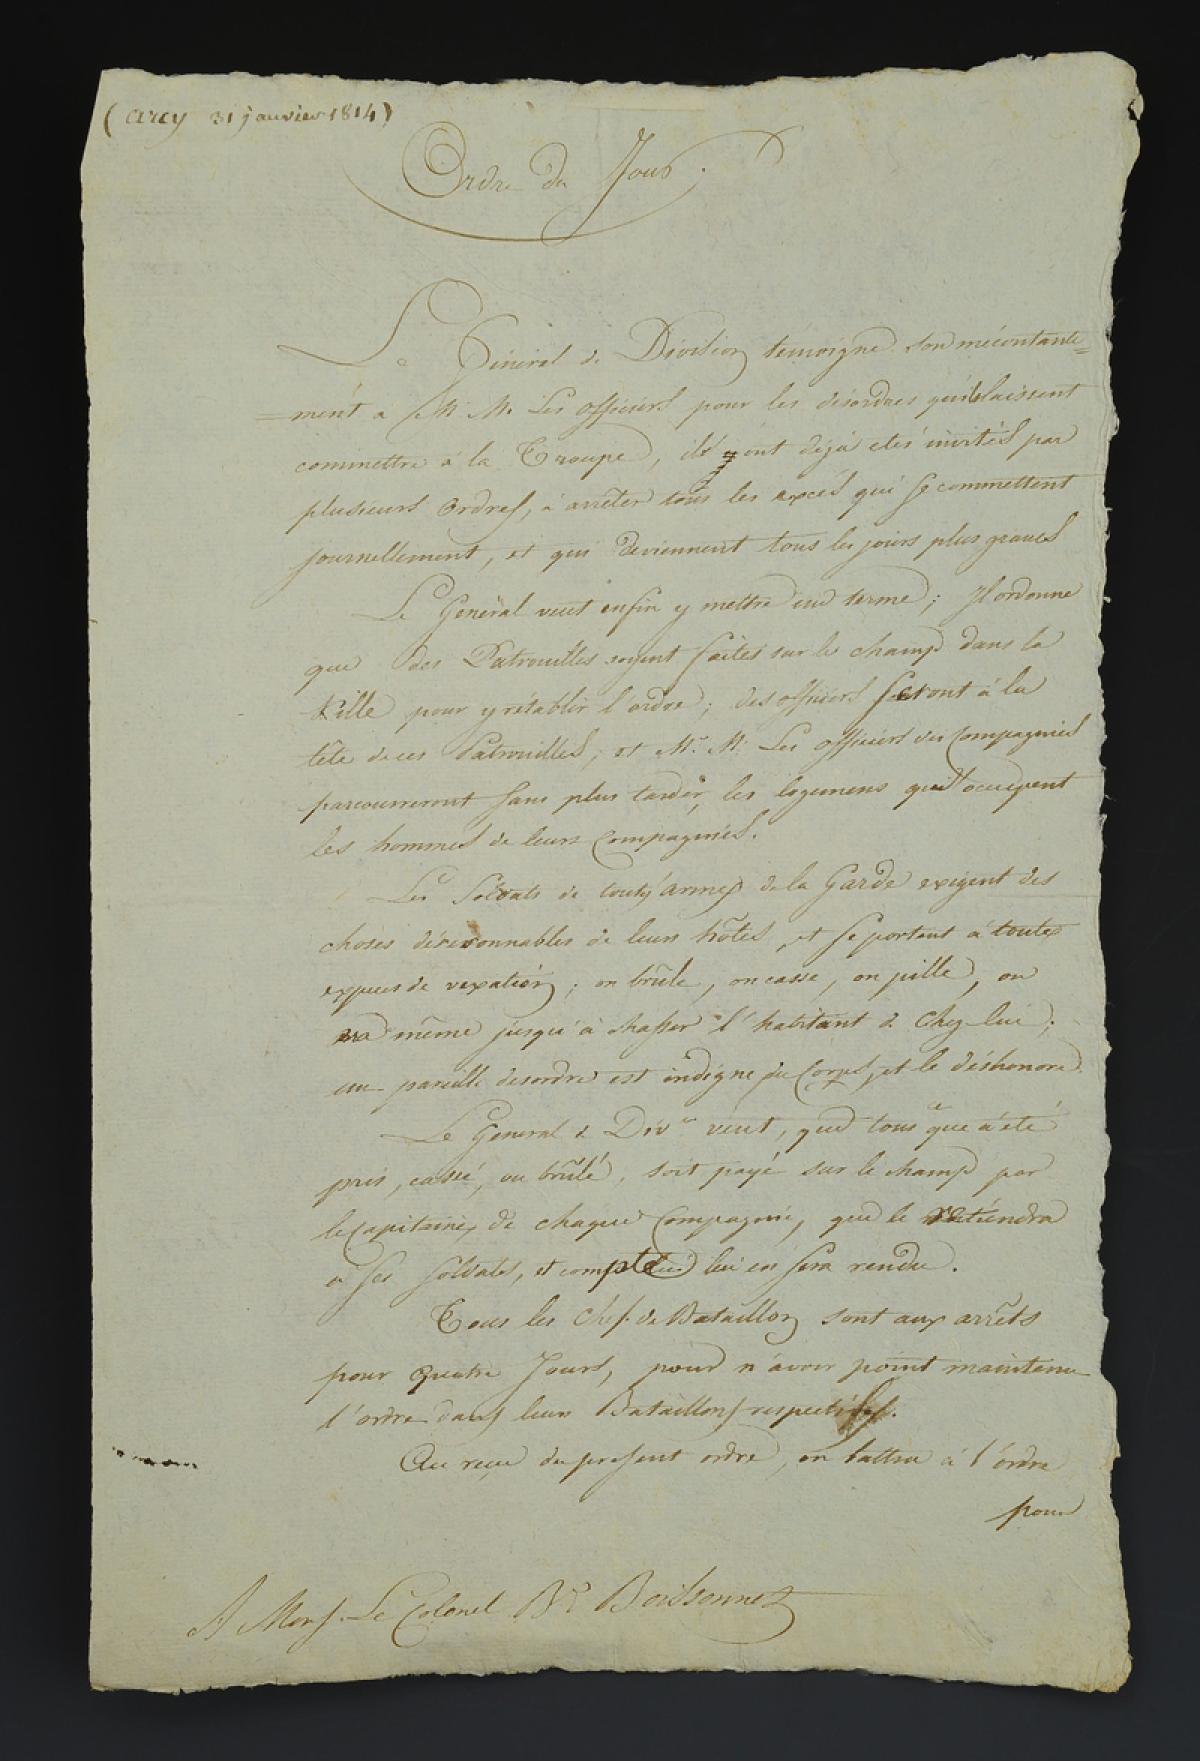 (arcy 31 janvier 1814)
Ordre du Jour.
Le Géneral de Division témoigne son mécontante=
=ment a M. M. Les officiers pour les désordres qu'ils laissent
commettre à la Troupe, ils y ont déjà étés invités par
plusieurs Ordres, à arrêter tous les excés qui se commettent
journellement, et qui deviennent tous les jours plus graves
Le Général veut enfin y mettre une terme; Il ordonne
que des Patrouilles soyent faites sur le champ dans la
Ville pour y rétablir l'ordre; des officiers seront à la
tête de ces Patrouilles, et M.rs M. Les officiers des Compagnies
parcourreront sans plus tarder, les logemens qu'occupent
les hommes de leurs Compagnies.
Les Soldats de toutes armes de la Garde exigent des
choses déresonnables de leurs hôtes, et se portent à toutes
especes de vexation; on brûle, on casse, on pille, on
va même jusqu'à chasser l'habitant de chez-lui;
un pareille desordre est indigne du Corps, et le déshonore.
Le Géneral de Div.on veut, que tous ce que a été
pris, cassé, ou brûlé, soit payé sur le champ par
le Capitaine de chaque Compagnie, que le retiendra
a ses soldats, et compte lui en sera rendu.
Tous les chefs de Bataillon sont aux arrêts
pour quatre Jours, pour n'avoir point maintenu
l'ordre dans leurs Bataillons respectifs.
Au reçu du present ordre, on battra à l'ordre
pour
A Mons. Le Colonel B.on Boissonnet